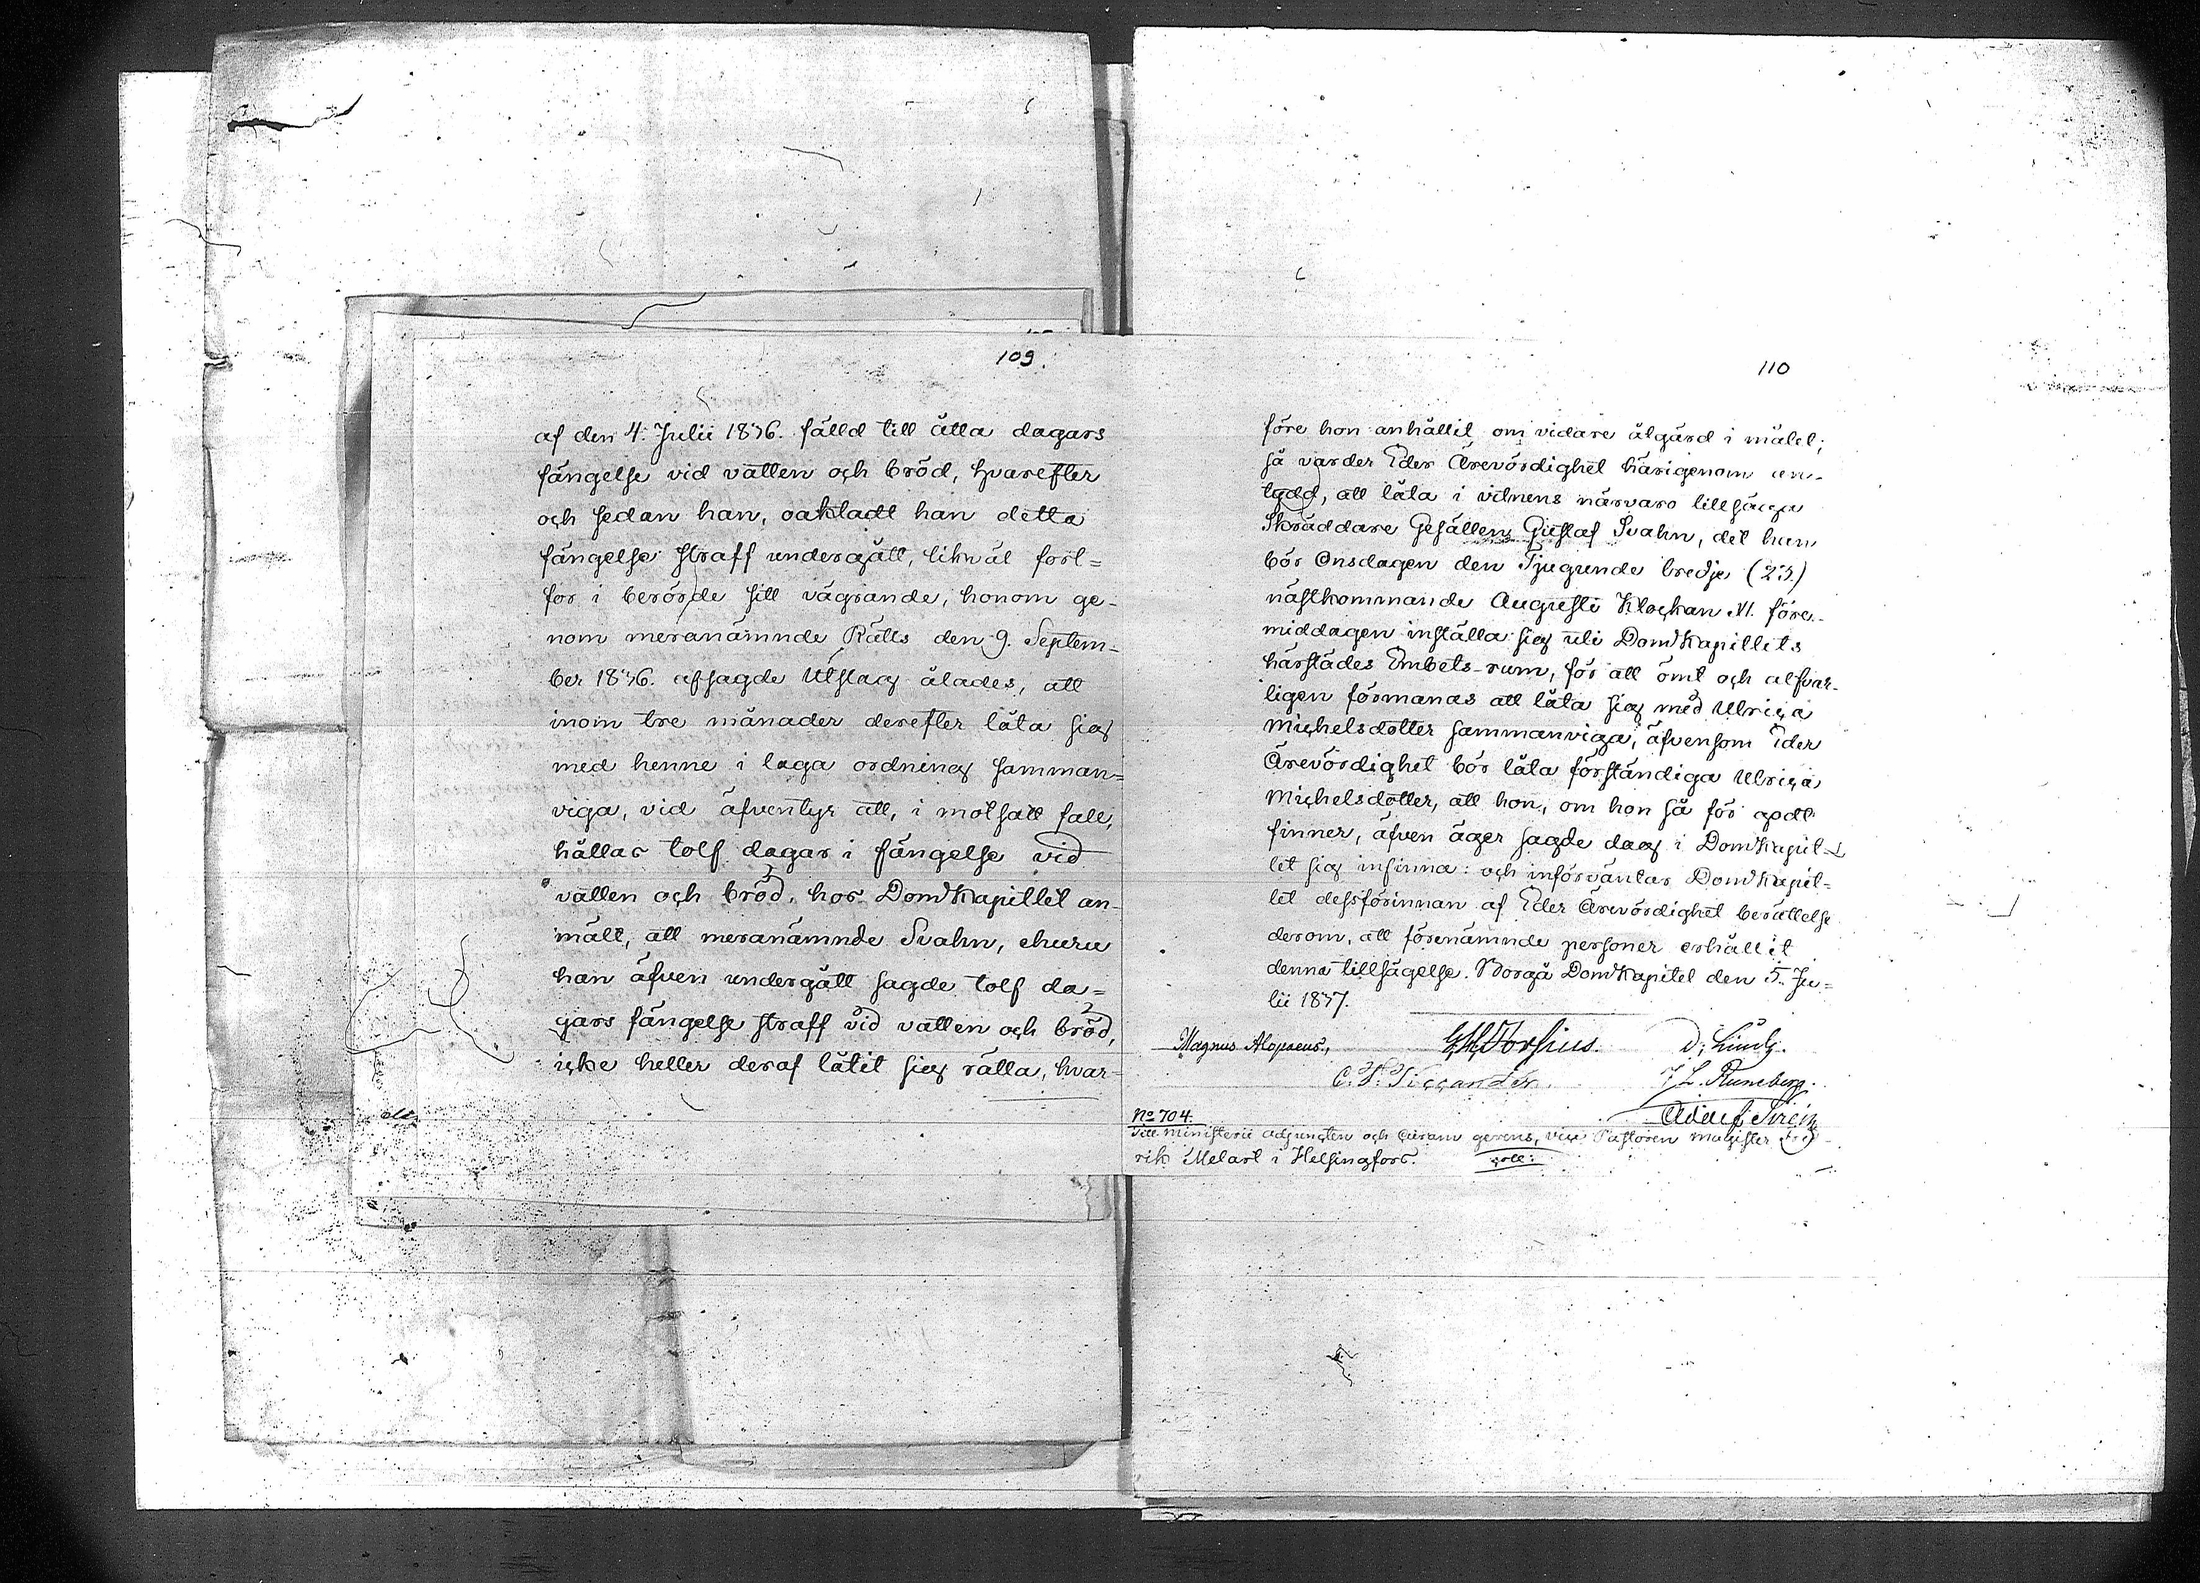 109.
af den 4. Julii 1836. fälld till åtta dagars
fängelse vid vatten och bröd, hvarefter
och sedan han, oaktadt han detta
fängelse straff undergått, likväl fort=
for i berörde sitt vägrande, honom ge-
nom meranämnde Rätts den 9. Septem-
ber 1836. afsagde Utslag ålades, att
inom tre månader derefter låta sig
med henne i laga ordning samman=
viga, vid äfventyr att, i motsatt fall,
hållas tolf dagar i fängelse vid
vatten och bröd, hos DomKapitlet an-
mält, att meranämnde Svahn, ehuru
han äfven undergått sagde tolf da=
gars fängelse straff vid vatten och bröd,
icke heller deraf låtit sig rätta, hvar-
110
före hon anhållit om vidare åtgärd i målet;
så varder Eder Ärevördighet härigenom an-
tydd, att låta i vitnens närvaro tillsäga
Skräddare Gesällen Gustaf Svahn, det han
bör Onsdagen den Tjugunde tredje (23.)
nästkommande Augusti Klockan XI. före-
middagen inställa sig uti DomKapitlets
härstädes Embets-rum, för att ömt och alfvar-
ligen förmanas att låta sig med Ulrica
Michelsdotter sammanviga; äfvensom Eder
Ärevördighet bör låta förständiga Ulrica
Michelsdotter, att hon, om hon så för godt
finner, äfven äger sagde dag i DomKapit-
let sig infinna: och införväntar DomKapit=
let dessförinnan af Eder Ärevördighet berättelse
derom, att förenämnde personer erhållit
denna tillsägelse. Borgå DomKapitel den 5. Ju=
lii 1837.
Magnus Alopaeus, Borsius. D. Lundg.
J. L. Runeberg.
Adolf Sirén
No 704.
Till Ministerii Adjuncten och Curam gerens, vice Pastoren Magister Fred-
rik Melart i Helsingfors. coll: